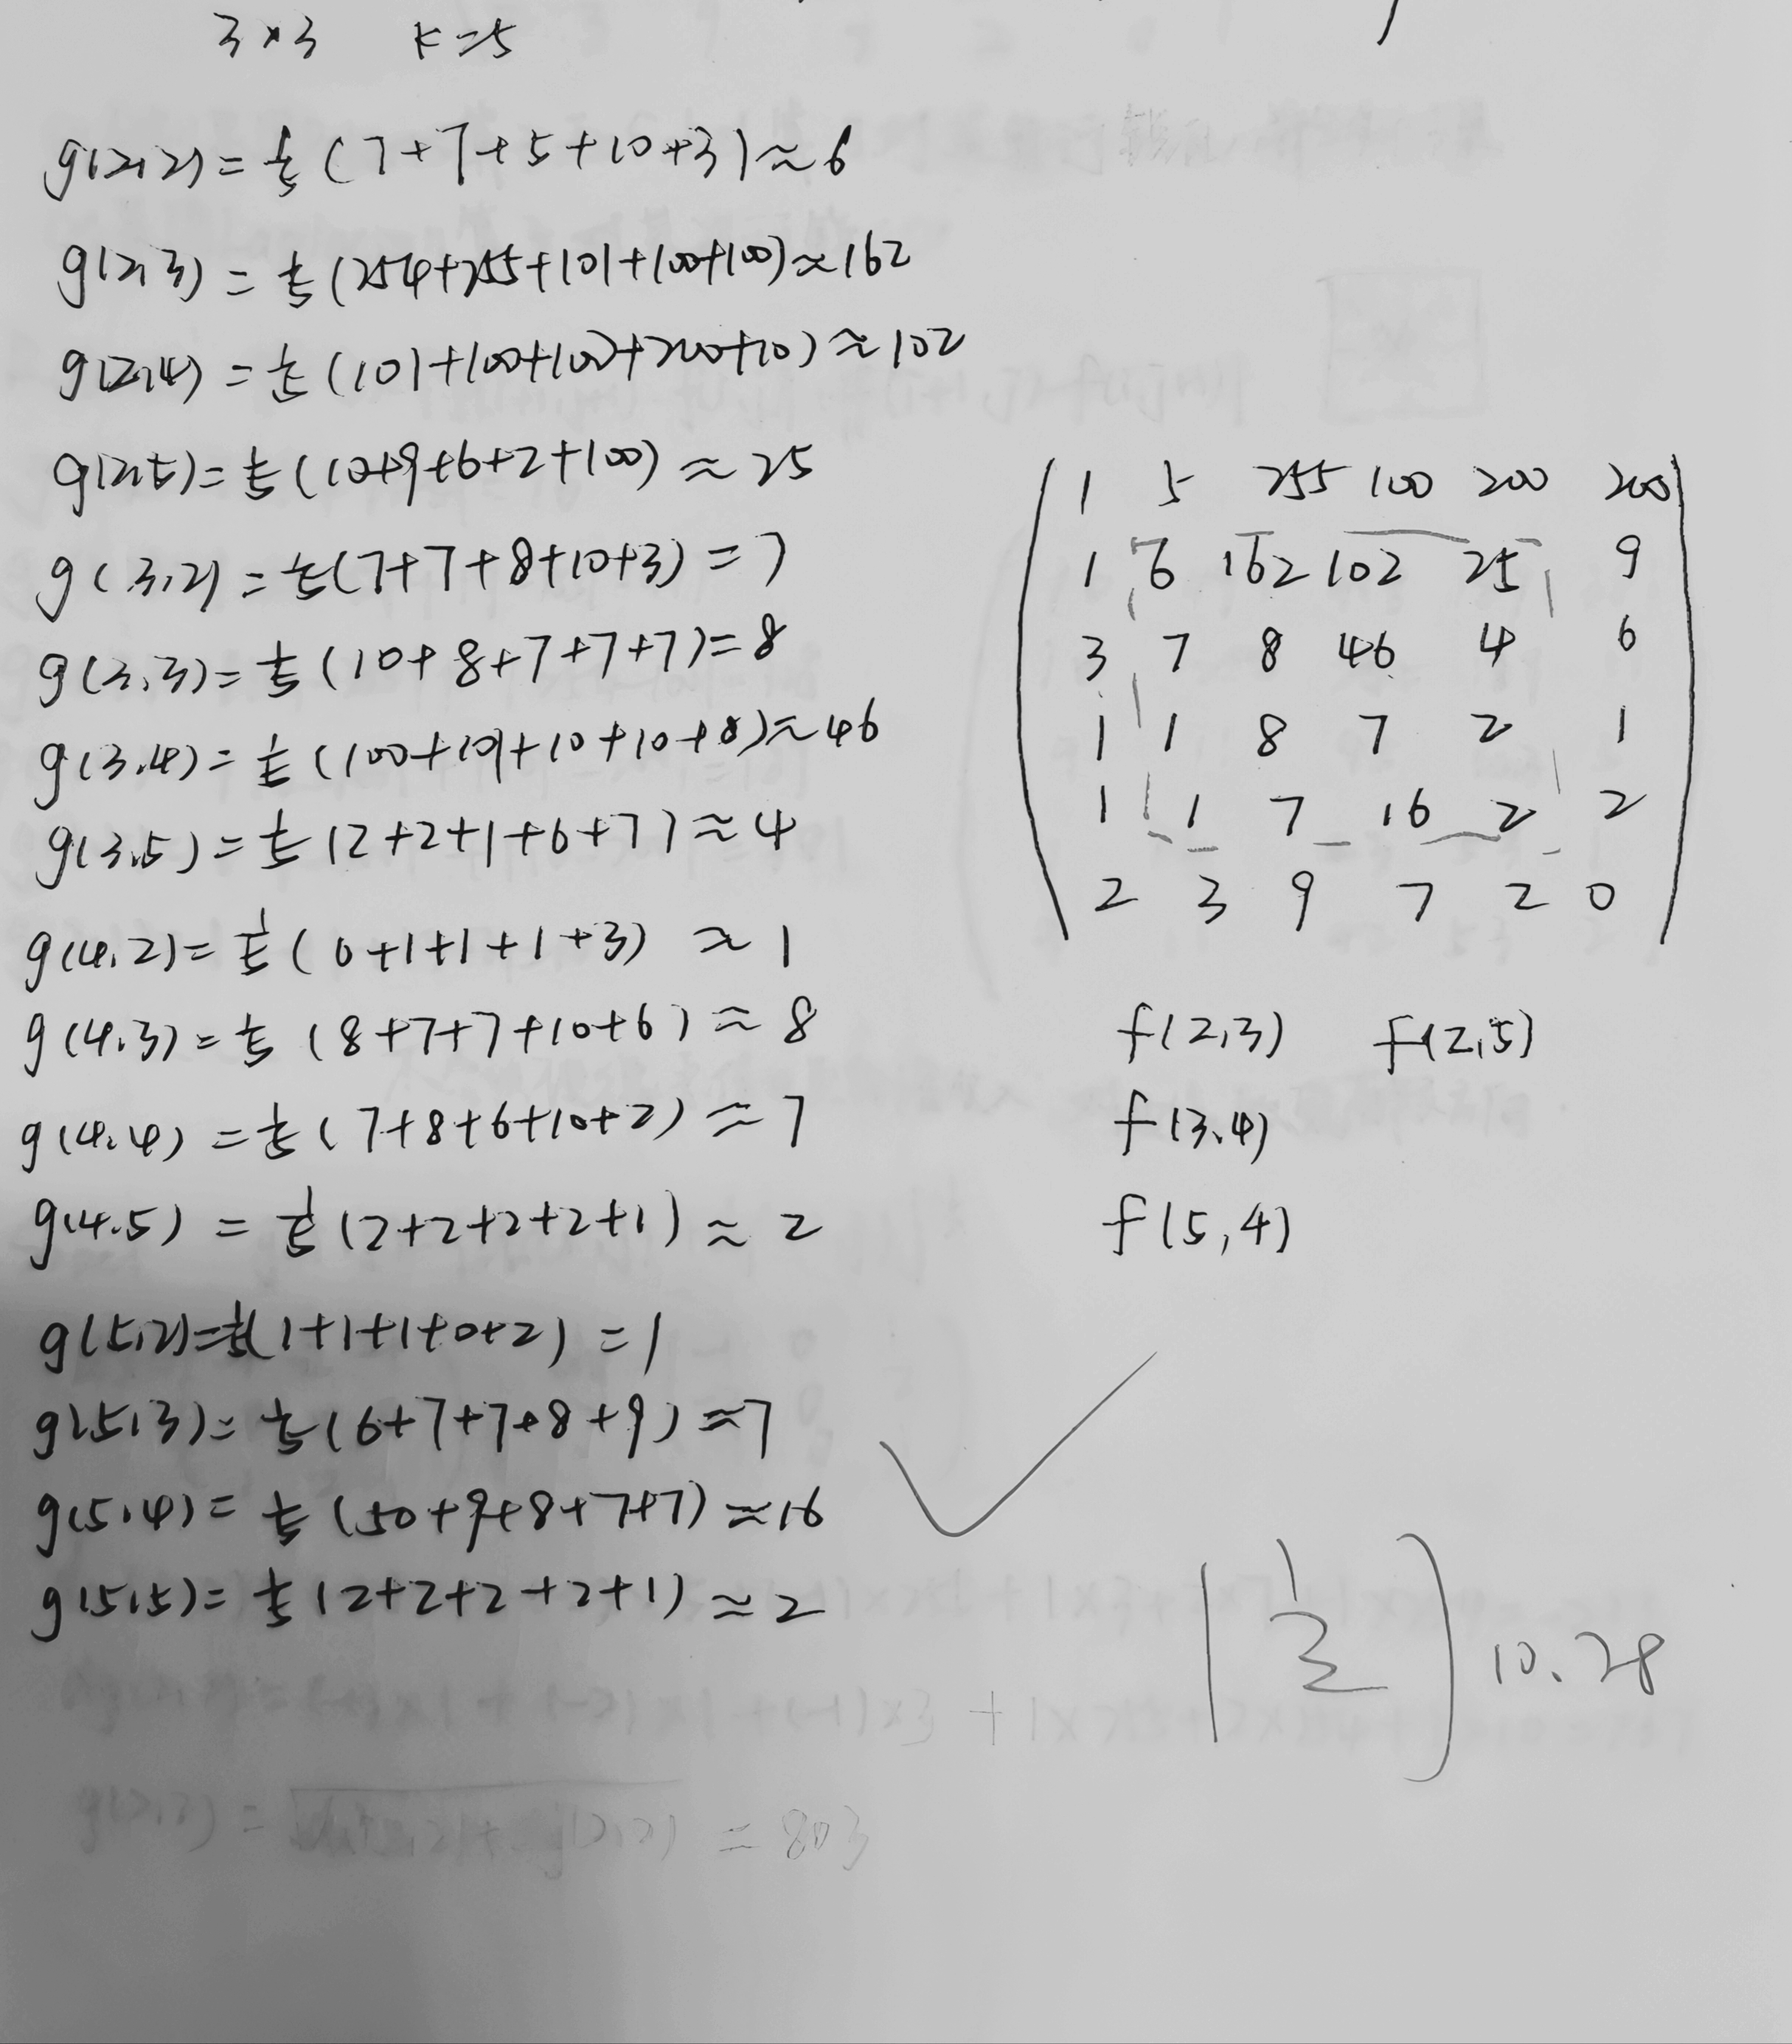 3×3 K=5
g(2,2)=1/5(7+7+5+10+3)≈6
g(2,3)=1/5(254+255+101+100+100)≈162
g(2,4)=1/5(101+100+100+200+10)≈102
g(2,5)=1/5(10+9+6+2+100)≈25
g(3,2)=1/5(7+7+8+10+3)=7
g(3,3)=1/5(10+8+7+7+7)=8
g(3,4)=1/5(100+101+10+10+8)≈46
g(3,5)=1/5(2+2+1+6+7)≈4
g(4,2)=1/5(0+1+1+1+3)≈1
g(4,3)=1/5(8+7+7+10+6)≈8
g(4,4)=1/5(7+8+6+10+2)≈7
g(4,5)=1/5(2+2+2+2+1)≈2
g(5,2)=1/5(1+1+1+0+2)=1
g(5,3)=1/5(6+7+7+8+9)≈7
g(5,4)=1/5(50+9+8+7+7)≈16
g(5,5)=1/5(2+2+2+2+1)≈2
1 5 255 100 200 200
1 6 162 102 25 9
3 7 8 46 4 6
1 1 8 7 2 1
1 1 7 16 2 2
2 3 9 7 2 0
f(2,3) f(2,5)
f(3,4)
f(5,4)
10.28